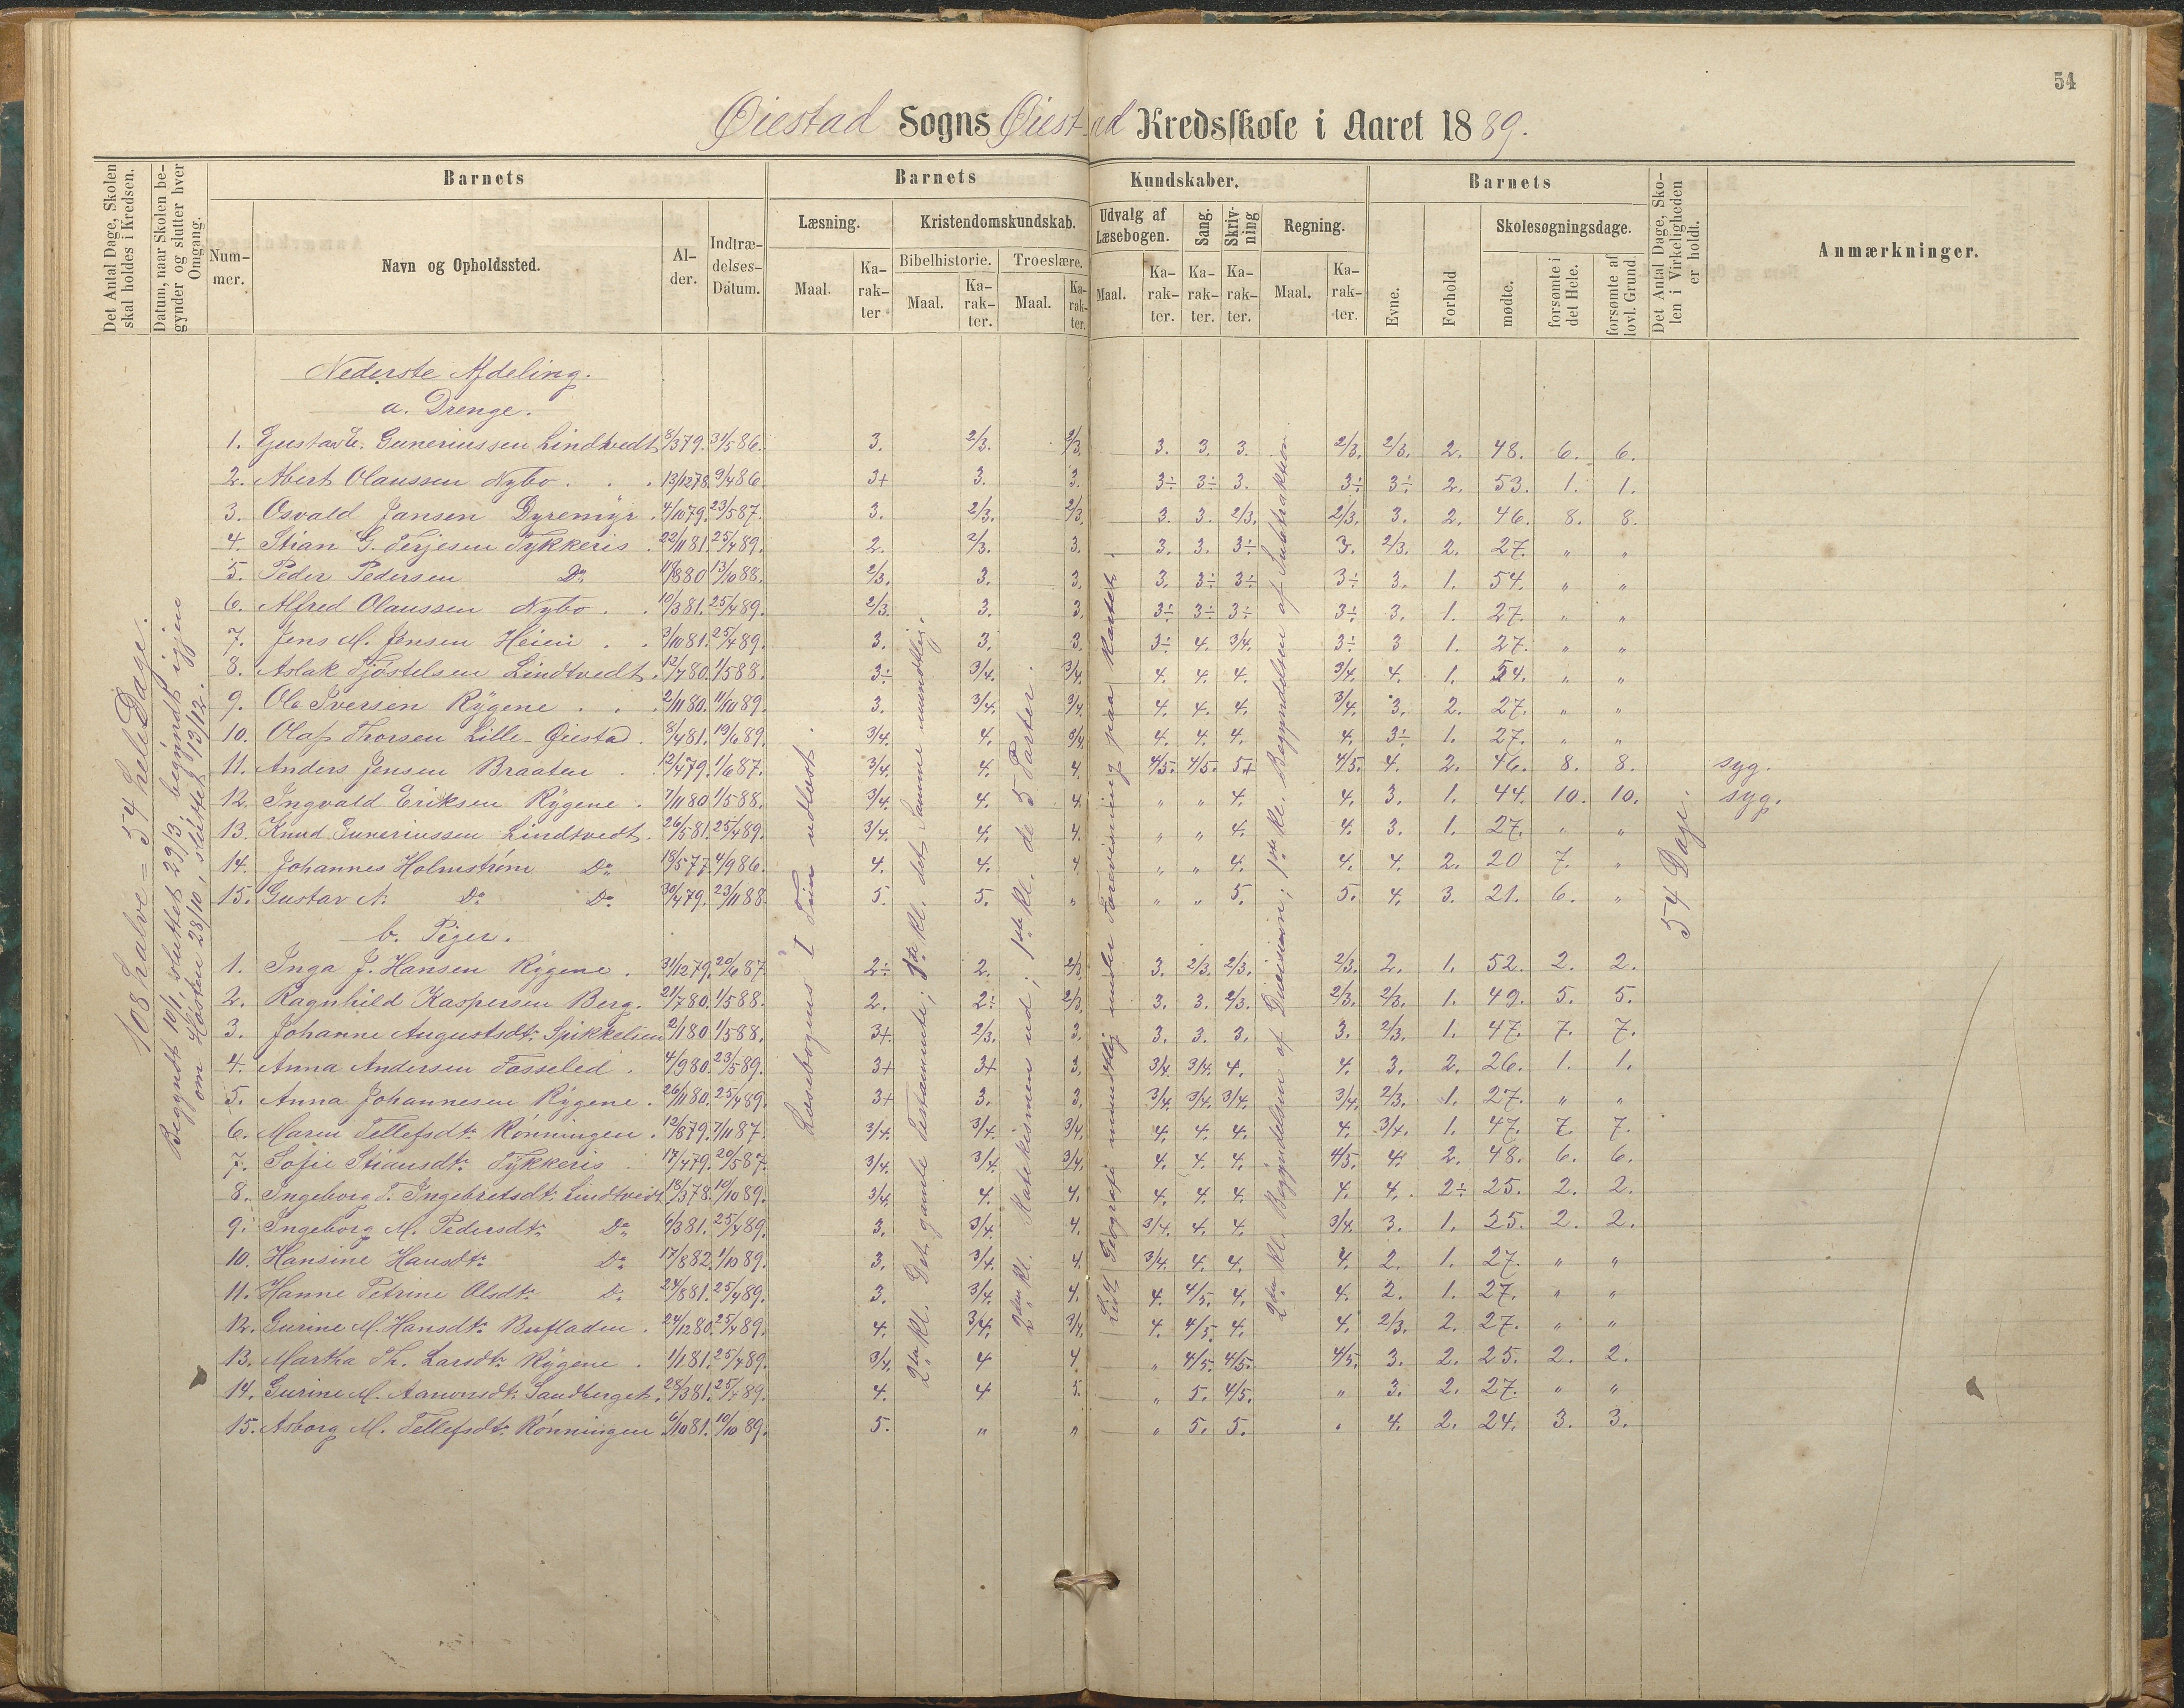 54
Øiestad Sogns Øiestad Kredsskole i Aaret 1889.
Det Antal Dage, Skolen skal holdes i Kredsen.
Datum, naar Skolen begynder og slutter hver Omgang.
Barnets
Barnets
Kundskaber.
Barnets
Nummer.
Navn og Opholdssted.
Alder.
Indtrædelses-Datum.
Læsning.
Kristendomskundskab.
Udvalg af Læsebogen.
Sang.
Skrivning
Regning.
Evne.
Forhold
Skolesøgningsdage.
Det Antal Dage, Skolen i Virkeligheden er holdt.
Anmærkninger.
Bibelhistorie.
Troeslære.
Maal.
Karakter
Maal.
Karakter.
Maal.
Karakter.
Maal.
Karakter.
Karakter.
Karakter.
Maal.
Karakter.
mødte.
forsømte i det Hele.
forsømte af lovl. Grund.
108 halve = 54 hele Dage.
Begyndt 10/1, sluttet 23/3, begyndt igjen
om Høsten 28/10, sluttet 13/12.
Læsebogens I Trin udlæst.
2den kl. Det gamle Testamente; 1ste kl. det Samme mundtlig.
2den kl. Katekismen ud; 1ste kl. de 5 Parter.
Lidt Geografi mundtlig under Forevisning paa Kartet.
2den kl. Begyndelsen af Division; 1ste kl. Begyndelsen af Subtraktion
54 Dage.
Nederste Afdeling.
a. Drenge.
1. Gustav E. Guneriussen Lindtvedt 8/3 79. 31/5 86. 3. 2/3. 2/3. 3. 3. 3. 2/3. 2/3. 2. 48. 6. 6.
2. Abert Olaussen Nybo . . . 13/12 78. 9/4 86. 3+ 3. 3. 3÷ 3÷ 3. 3÷ 3÷ 2. 53. 1. 1.
3. Osvald Jansen Dyremyr . 4/10 79. 23/5 87. 3. 2/3. 2/3. 3. 3. 2/3. 2/3. 3. 2. 46. 8. 8.
4. Stian G. Terjesen Tykkeris . 22/11 81. 25/4 89. 2. 2/3. 3. 3. 3. 3÷ 3. 2/3. 2. 27. " "
5. Peder Pedersen Do 13/10 88. 2/3. 3. 3. 3. 3÷ 3÷ 3÷ 3. 1. 54. " "
6. Alfred Olaussen Nybo . . 10/3 81. 25/4 89. 2/3. 3. 3. 3÷ 3÷ 3÷ 3÷ 3. 1. 27. " "
7. Jens M. Jensen Heien . . 3/10 81. 25/4 89. 3. 3. 3. 3÷ 4. 3/4. 3÷ 3 1. 27. " "
8. Aslak Tjöstelsen Lindtvedt . 12/7 80. 1/5 88. 3÷ 3/4. 3/4. 4. 4. 4. 3/4. 4. 1. 54. " "
9. Ole Iversen Rygene . . . 2/11 80. 11/10 89. 3. 3/4. 3/4. 4. 4. 4. 3/4. 3. 2. 27. " "
10. Olaf Thorsen Lille-Øiestad . 8/4 81. 19/6 89. 3/4. 4. 3/4. 4. 4. 4. 4. 3÷ 1. 27. " "
11. Anders Jensen Braaten . 12/4 79. 1/6 87. 3/4. 4. 4. 4/5. 4/5. 5+ 4/5. 4. 2. 46. 8. 8. syg.
12. Ingvald Eriksen Rygene . 7/11 80 1/5 88. 3/4. 4. 4. " " 4. 4. 3. 1. 44. 10. 10. syg.
13. Knud Guneriussen Lindtvedt . 26/5 81. 25/4 89. 3/4. 4. 4. " " 4. 4. 3. 1. 27. " "
14. Johannes Holmstrøm Do 18/5 77. 4/9 86. 4. 4. 4. " " 4. 4. 4. 2. 20 7. "
15. Gustav A. Do Do 30/4 79. 23/11 88. 5. 5. " " " 5. 5. 4. 3. 21. 6. "
b. Piger.
1. Inga J. Hansen Rygene . 31/12 79. 20/6 87 2÷ 2. 2/3. 3. 2/3. 2/3. 2/3. 2. 1. 52. 2. 2.
2. Ragnhild Kaspersen Berg. 21/7 80. 1/5 88. 2. 2÷ 2/3. 3. 3. 2/3. 2/3. 2/3. 1. 49. 5. 5.
3. Johanne Augustsdtr. Spikkelien 2/1 80 1/5 88. 3+ 2/3. 3. 3. 3. 3. 3. 2/3. 1. 47. 7. 7.
4. Anna Andersen Fasseled . 4/9 80. 23/5 89. 3+ 3+ 3. 3/4. 3/4. 4. 4. 3. 2. 26. 1. 1.
5. Anna Johannesen Rygene . 26/11 80. 25/4 89. 3+ 3. 3. 3/4. 3/4. 3/4. 3/4. 2/3. 1. 27. " "
6. Maren Tellefsdtr. Rönningen . 12/8 79. 7/11 87. 3/4. 3/4. 3/4. 4. 4. 4. 4. 3/4. 1. 47. 7. 7.
7. Sofie Stiansdtr. Tykkeris . 17/4 79. 20/5 87. 3/4. 3/4. 3/4. 4. 4. 4. 4/5. 4. 2. 48. 6. 6.
8. Ingeborg T. Ingebretsdtr. Lindtvedt 18/3 78. 10/10 89. 3/4. 4. 4. 4. 4. 4. 4. 4. 2÷ 25. 2. 2.
9. Ingeborg M. Pedersdtr. Do 6/3 81. 25/4 89. 3. 3/4. 4. 3/4. 4. 4. 3/4. 3. 1. 25. 2. 2.
10. Hansine Hansdtr. Do 17/8 82. 1/10 89. 3. 3/4. 4. 3/4. 4. 4. 4. 2. 1. 27. " "
11. Hanne Petrine Olsdtr. Do 24/8 81. 25/4 89. 3. 3/4. 4. 4. 4/5. 4. 4. 2. 1. 27. " "
12. Gurine M. Hansdtr. Bufladen . 24/12 80. 25/4 89. 4. 3/4. 3/4. 4. 4/5. 4. 4. 2/3. 2. 27. " "
13. Martha Th. Larsdtr. Rygene . 1/1 81. 25/4 89. 3/4. 4 4. " 4/5. 4/5. 4/5. 3. 2. 25. 2. 2.
14. Gurine M. Aanonsdtr. Sandberget. 28/3 81. 25/4 89. 4. 4 5. " 5. 4/5. " 3. 2. 27. " "
15. Asborg M. Tellefsdtr. Rönningen . 6/10 81. 10/10 89. 5. " " " 5. 5. " 4. 2. 24. 3. 3.